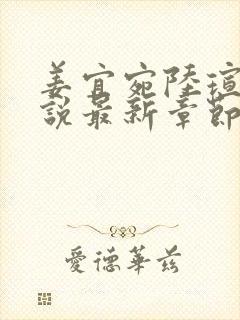 姜宜宛陸瑄
說最新章節
愛德華茲